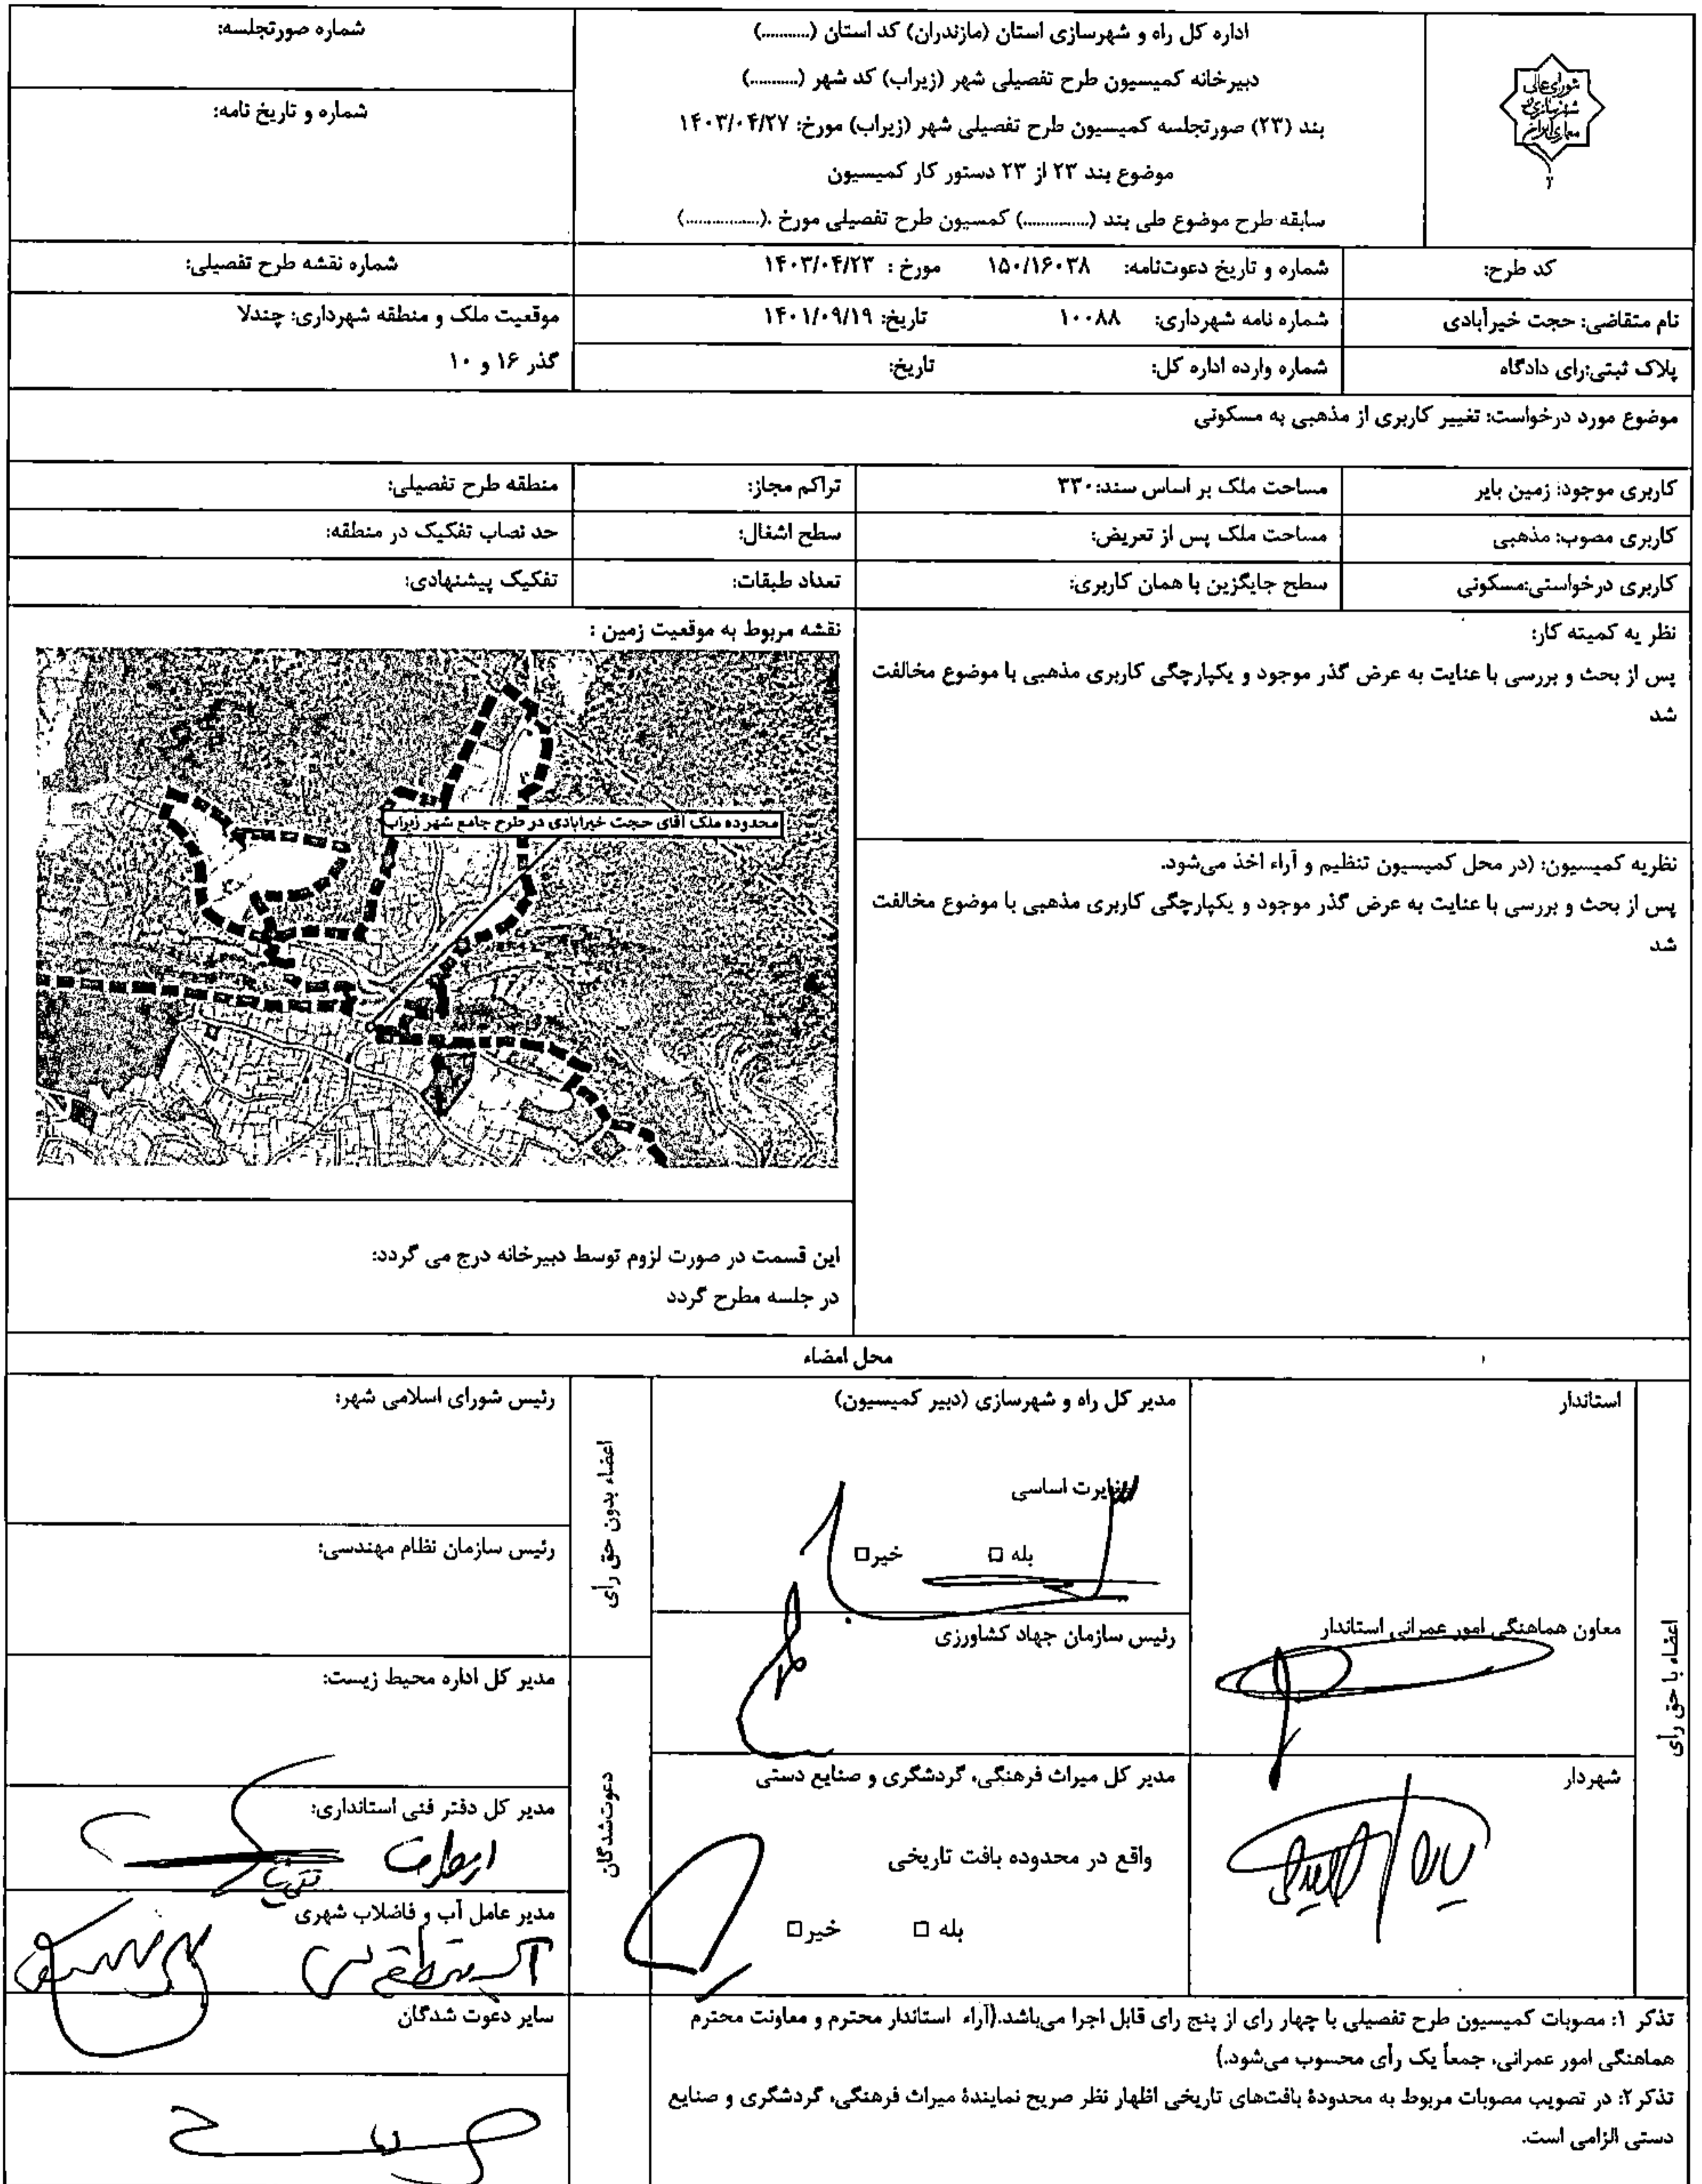 شورای عالی
شهرسازی و
معماری ایران
اداره کل راه و شهرسازی استان (مازندران) کد استان (..........)
دبیرخانه کمیسیون طرح تفصیلی شهر (زیراب) کد شهر (..........)
بند (۲۳) صورتجلسه کمیسیون طرح تفصیلی شهر (زیراب) مورخ: ۱۴۰۳/۰۴/۲۷
موضوع بند ۲۳ از ۲۳ دستور کار کمیسیون
سابقه طرح موضوع طی بند (..............) کمسیون طرح تفصیلی مورخ .(................)
شماره صورتجلسه:
شماره و تاریخ نامه:
کد طرح:
شماره و تاریخ دعوت‌نامه: ۱۵۰/۱۶۰۳۸ مورخ : ۱۴۰۳/۰۴/۲۳
شماره نقشه طرح تفصیلی:
نام متقاضی: حجت خیرآبادی
شماره نامه شهرداری: ۱۰۰۸۸ تاریخ: ۱۴۰۱/۰۹/۱۹
موقعیت ملک و منطقه شهرداری: چندلا
گذر ۱۶ و ۱۰
پلاک ثبتی:رای دادگاه
شماره وارده اداره کل: تاریخ:
موضوع مورد درخواست: تغییر کاربری از مذهبی به مسکونی
کاربری موجود: زمین بایر
مساحت ملک بر اساس سند:۳۳۰
تراکم مجاز:
منطقه طرح تفصیلی:
کاربری مصوب: مذهبی
مساحت ملک پس از تعریض:
سطح اشغال:
حد نصاب تفکیک در منطقه:
کاربری درخواستی:مسکونی
سطح جایگزین با همان کاربری:
تعداد طبقات:
تفکیک پیشنهادی:
نظر یه کمیته کار:
پس از بحث و بررسی با عنایت به عرض گذر موجود و یکپارچگی کاربری مذهبی با موضوع مخالفت
شد
نقشه مربوط به موقعیت زمین :
محدوده ملک آقای حجت خیرابادی در طرح جامع شهر زیراب
نظریه کمیسیون: (در محل کمیسیون تنظیم و آراء اخذ می‌شود.
پس از بحث و بررسی با عنایت به عرض گذر موجود و یکپارچگی کاربری مذهبی با موضوع مخالفت
شد
این قسمت در صورت لزوم توسط دبیرخانه درج می گردد:
در جلسه مطرح گردد
محل امضاء
اعضاء با حق رأی
استاندار
معاون هماهنگی امور عمرانی استاندار
شهردار
مدیر کل راه و شهرسازی (دبیر کمیسیون)
مغایرت اساسی
بله □ خیر□
رئیس سازمان جهاد کشاورزی
مدیر کل میراث فرهنگی، گردشگری و صنایع دستی
واقع در محدوده بافت تاریخی
بله □ خیر□
اعضاء بدون حق رأی
رئیس شورای اسلامی شهر:
رئیس سازمان نظام مهندسی:
دعوت‌شدگان
مدیر کل اداره محیط زیست:
مدیر کل دفتر فنی استانداری:
مدیر عامل آب و فاضلاب شهری
سایر دعوت شدگان
تذکر ۱: مصوبات کمیسیون طرح تفصیلی با چهار رای از پنج رای قابل اجرا می‌باشد.(آراء استاندار محترم و معاونت محترم
هماهنگی امور عمرانی، جمعاً یک رأی محسوب می‌شود.)
تذکر ۲: در تصویب مصوبات مربوط به محدودهٔ بافت‌های تاریخی اظهار نظر صریح نمایندهٔ میراث فرهنگی، گردشگری و صنایع
دستی الزامی است.